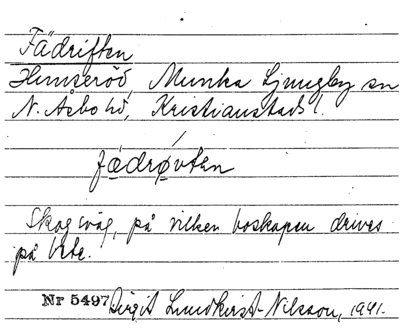 Fädriften
Hunseröd, Munka Ljungby sn
N. Åsbo hd, Kristianstads l.
fädrøvten
Skogsväg, på vilken boskapen drives
på bete.
Nr 5497 Birgit Lundkvist-Nilsson, 1941.